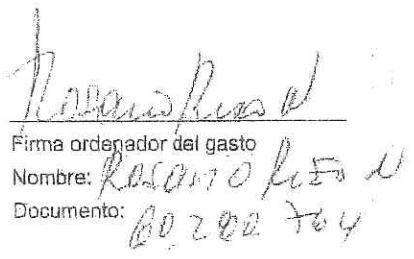 Rosario Rizo N
Firma ordenador del gasto
Nombre: Rosario Rizo N
Documento: 60 280 704